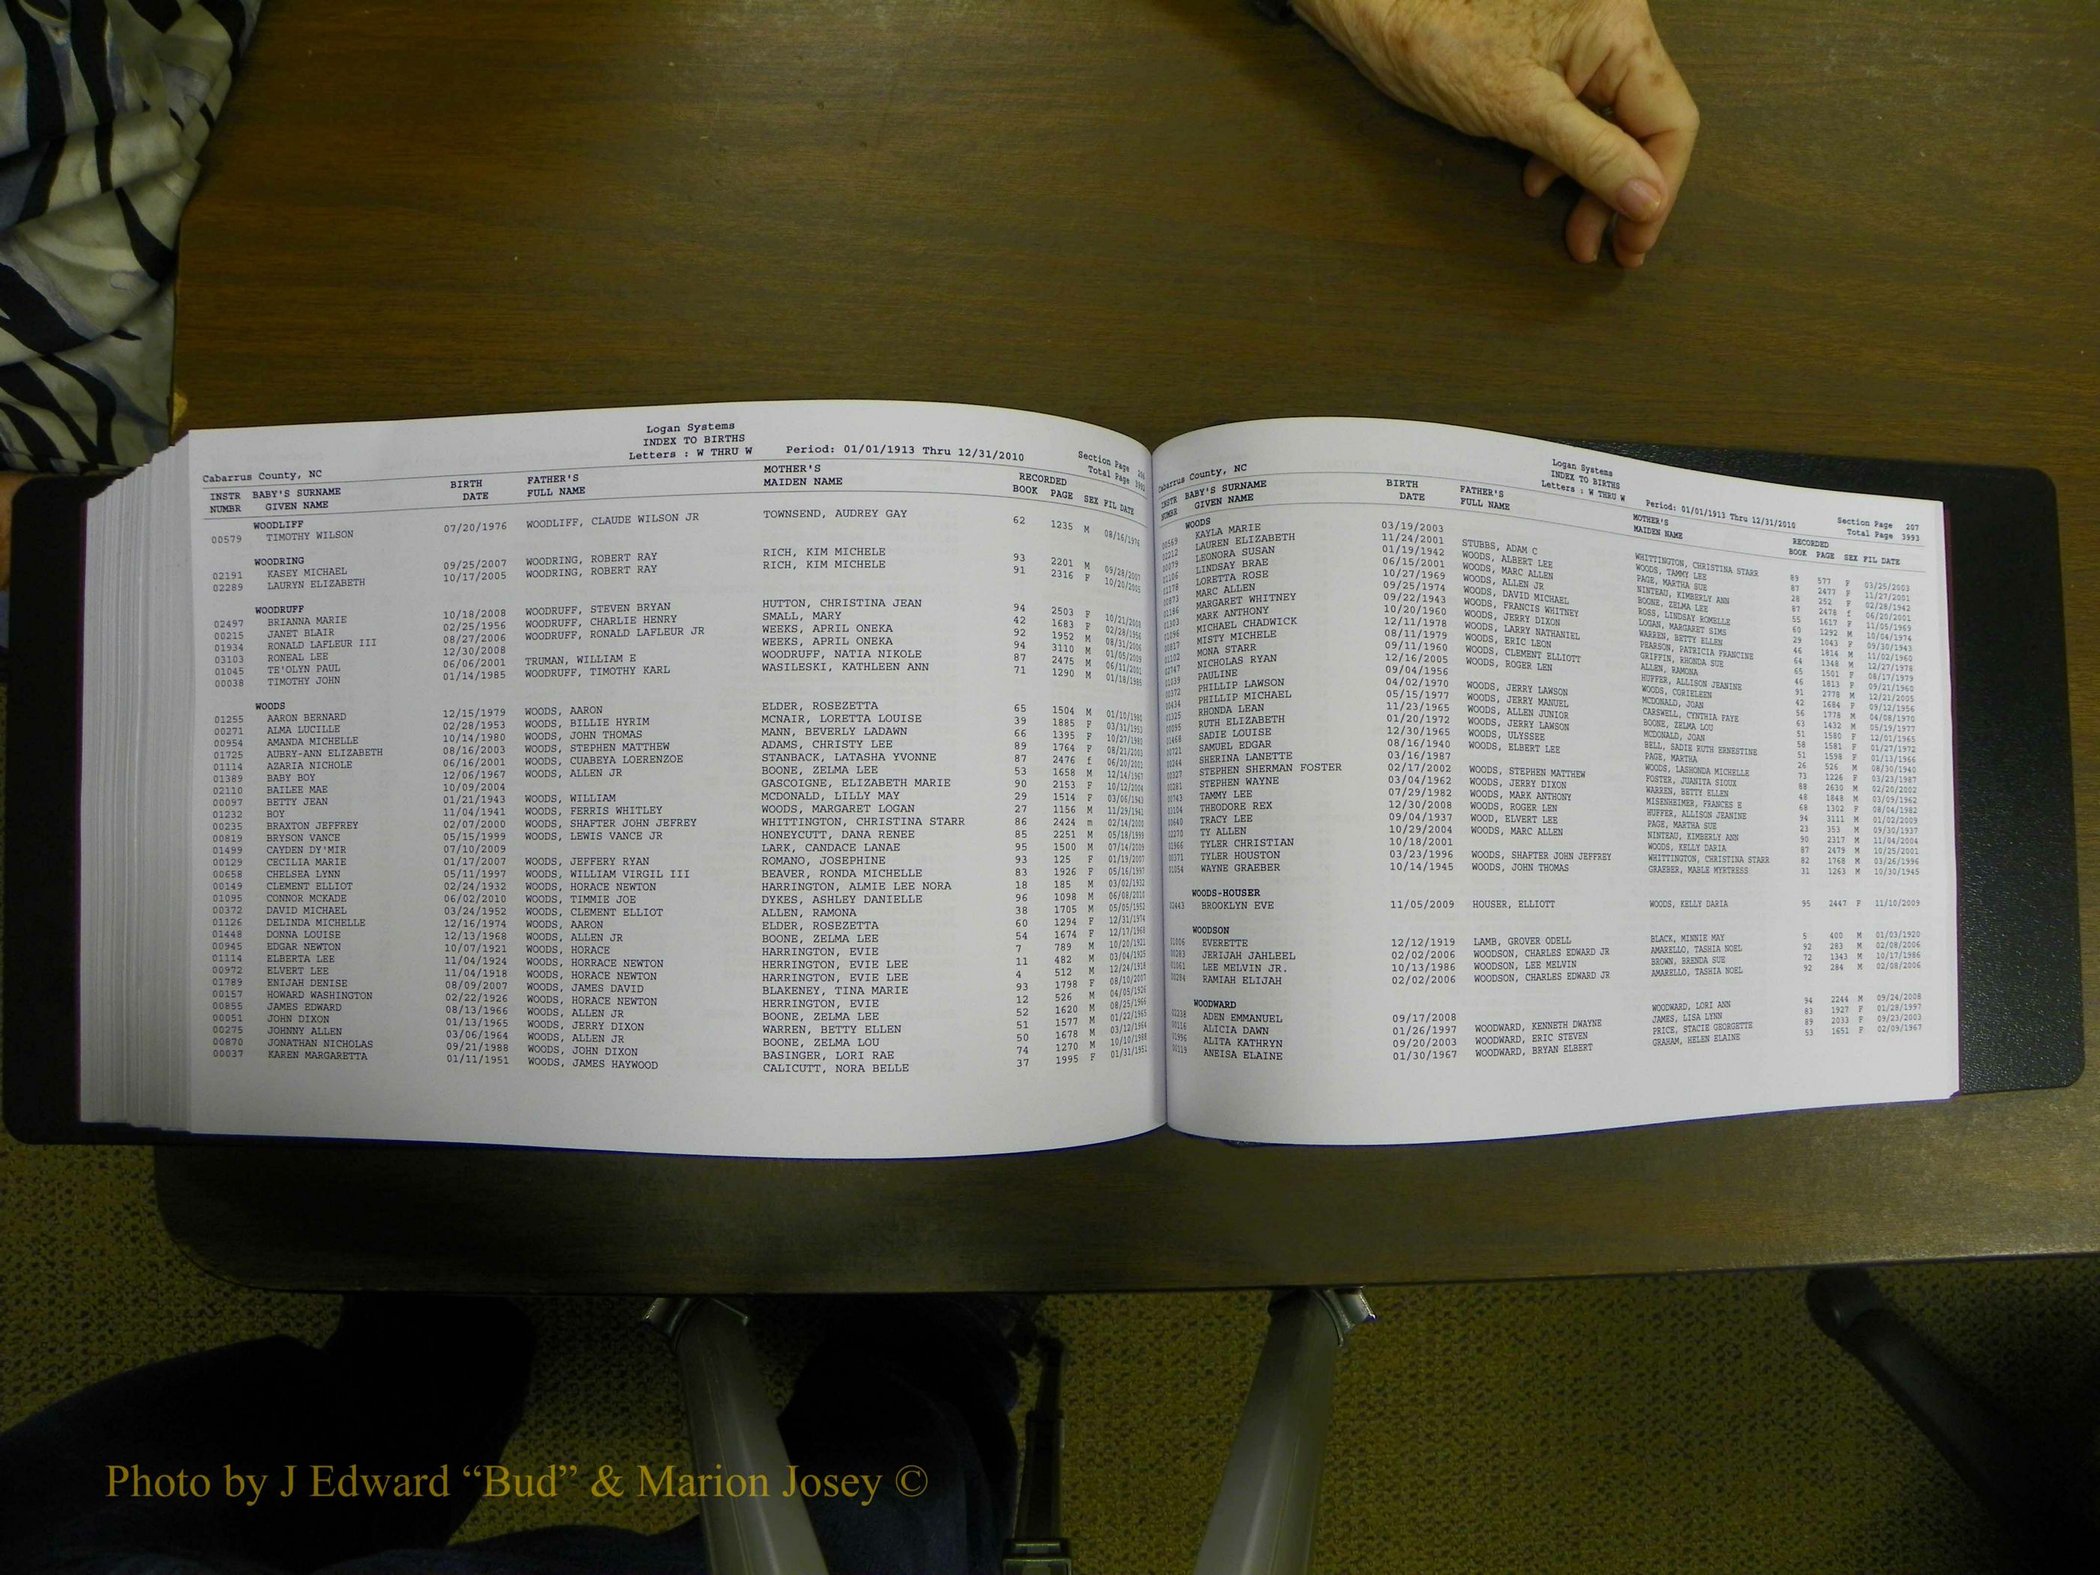 Logan Systems
INDEX TO BIRTHS
Letters : W THRU W Period: 01/01/1913 Thru 12/31/2010
Section Page 206
Total Page 3992
Cabarrus County, NC
INSTR BABY'S SURNAME BIRTH FATHER'S MOTHER'S RECORDED
NUMBR GIVEN NAME DATE FULL NAME MAIDEN NAME BOOK PAGE SEX FIL DATE
WOODLIFF
00579 TIMOTHY WILSON 07/20/1976 WOODLIFF, CLAUDE WILSON JR TOWNSEND, AUDREY GAY 62 1235 M 08/16/1976
WOODRING
02191 KASEY MICHAEL 09/25/2007 WOODRING, ROBERT RAY RICH, KIM MICHELE 93 2201 M 09/28/2007
02289 LAURYN ELIZABETH 10/17/2005 WOODRING, ROBERT RAY RICH, KIM MICHELE 91 2316 F 10/20/2005
WOODRUFF
02497 BRIANNA MARIE 10/18/2008 WOODRUFF, STEVEN BRYAN HUTTON, CHRISTINA JEAN 94 2503 F 10/21/2008
00215 JANET BLAIR 02/25/1956 WOODRUFF, CHARLIE HENRY SMALL, MARY 42 1683 F 02/28/1956
01934 RONALD LAFLEUR III 08/27/2006 WOODRUFF, RONALD LAFLEUR JR WEEKS, APRIL ONEKA 92 1952 M 08/31/2006
03103 RONEAL LEE 12/30/2008 WEEKS, APRIL ONEKA 94 3110 M 01/05/2009
01045 TE'OLYN PAUL 06/06/2001 TRUMAN, WILLIAM E WOODRUFF, NATIA NIKOLE 87 2475 M 06/11/2001
00038 TIMOTHY JOHN 01/14/1985 WOODRUFF, TIMOTHY KARL WASILESKI, KATHLEEN ANN 71 1290 M 01/18/1985
WOODS
01255 AARON BERNARD 12/15/1979 WOODS, AARON ELDER, ROSEZETTA 65 1504 M 01/10/1980
00271 ALMA LUCILLE 02/28/1953 WOODS, BILLIE HYRIM MCNAIR, LORETTA LOUISE 39 1885 F 03/31/1953
00954 AMANDA MICHELLE 10/14/1980 WOODS, JOHN THOMAS MANN, BEVERLY LADAWN 66 1395 F 10/27/1980
01725 AUBRY-ANN ELIZABETH 08/16/2003 WOODS, STEPHEN MATTHEW ADAMS, CHRISTY LEE 89 1764 F 08/21/2003
01114 AZARIA NICHOLE 06/16/2001 WOODS, CUABEYA LOERENZOE STANBACK, LATASHA YVONNE 87 2476 f 06/20/2001
01389 BABY BOY 12/06/1967 WOODS, ALLEN JR BOONE, ZELMA LEE 53 1658 M 12/14/1967
02110 BAILEE MAE 10/09/2004 GASCOIGNE, ELIZABETH MARIE 90 2153 F 10/12/2004
00097 BETTY JEAN 01/21/1943 WOODS, WILLIAM MCDONALD, LILLY MAY 29 1514 F 03/06/1943
01232 BOY 11/04/1941 WOODS, FERRIS WHITLEY WOODS, MARGARET LOGAN 27 1156 M 11/29/1941
00235 BRAXTON JEFFREY 02/07/2000 WOODS, SHAFTER JOHN JEFREY WHITTINGTON, CHRISTINA STARR 86 2424 m 02/14/2000
00819 BRYSON VANCE 05/15/1999 WOODS, LEWIS VANCE JR HONEYCUTT, DANA RENEE 85 2251 M 05/18/1999
01499 CAYDEN DY'MIR 07/10/2009 LARK, CANDACE LANAE 95 1500 M 07/14/2009
00129 CECILIA MARIE 01/17/2007 WOODS, JEFFERY RYAN ROMANO, JOSEPHINE 93 125 F 01/19/2007
00658 CHELSEA LYNN 05/11/1997 WOODS, WILLIAM VIRGIL III BEAVER, RONDA MICHELLE 83 1926 F 05/16/1997
00149 CLEMENT ELLIOT 02/24/1932 WOODS, HORACE NEWTON HARRINGTON, ALMIE LEE NORA 18 185 M 03/02/1932
01095 CONNOR MCKADE 06/02/2010 WOODS, TIMMIE JOE DYKES, ASHLEY DANIELLE 96 1098 M 06/08/2010
00372 DAVID MICHAEL 03/24/1952 WOODS, CLEMENT ELLIOT ALLEN, RAMONA 38 1705 M 05/05/1952
01126 DELINDA MICHELLE 12/16/1974 WOODS, AARON ELDER, ROSEZETTA 60 1294 F 12/31/1974
01448 DONNA LOUISE 12/13/1968 WOODS, ALLEN JR BOONE, ZELMA LEE 54 1674 F 12/17/1968
00945 EDGAR NEWTON 10/07/1921 WOODS, HORACE HARRINGTON, EVIE 7 789 M 10/20/1921
01114 ELBERTA LEE 11/04/1924 WOODS, HORRACE NEWTON HERRINGTON, EVIE LEE 11 482 M 03/04/1925
00972 ELVERT LEE 11/04/1918 WOODS, HORACE NEWTON HARRINGTON, EVIE LEE 4 512 M 12/24/1918
01789 ENIJAH DENISE 08/09/2007 WOODS, JAMES DAVID BLAKENEY, TINA MARIE 93 1798 F 08/10/2007
00157 HOWARD WASHINGTON 02/22/1926 WOODS, HORACE NEWTON HERRINGTON, EVIE 12 526 M 04/05/1926
00855 JAMES EDWARD 08/13/1966 WOODS, ALLEN JR BOONE, ZELMA LEE 52 1620 M 08/25/1966
00051 JOHN DIXON 01/13/1965 WOODS, JERRY DIXON WARREN, BETTY ELLEN 51 1577 M 01/22/1965
00275 JOHNNY ALLEN 03/06/1964 WOODS, ALLEN JR BOONE, ZELMA LOU 50 1678 M 03/12/1964
00870 JONATHAN NICHOLAS 09/21/1988 WOODS, JOHN DIXON BASINGER, LORI RAE 74 1270 M 10/10/1988
00037 KAREN MARGARETTA 01/11/1951 WOODS, JAMES HAYWOOD CALICUTT, NORA BELLE 37 1995 F 01/31/1951
Logan Systems
INDEX TO BIRTHS
Letters : W THRU W Period: 01/01/1913 Thru 12/31/2010
Section Page 207
Total Page 3993
Cabarrus County, NC
INSTR BABY'S SURNAME BIRTH FATHER'S MOTHER'S RECORDED
NUMBR GIVEN NAME DATE FULL NAME MAIDEN NAME BOOK PAGE SEX FIL DATE
WOODS
00569 KAYLA MARIE 03/19/2003 WHITTINGTON, CHRISTINA STARR 89 577 F 03/25/2003
02212 LAUREN ELIZABETH 11/24/2001 STUBBS, ADAM C WOODS, TAMMY LEE 87 2477 F 11/27/2001
00079 LEONORA SUSAN 01/19/1942 WOODS, ALBERT LEE PAGE, MARTHA SUE 28 252 F 02/28/1942
01106 LINDSAY BRAE 06/15/2001 WOODS, MARC ALLEN NINTEAU, KIMBERLY ANN 87 2478 f 06/20/2001
01178 LORETTA ROSE 10/27/1969 WOODS, ALLEN JR BOONE, ZELMA LEE 55 1617 F 11/05/1969
00873 MARC ALLEN 09/25/1974 WOODS, DAVID MICHAEL ROSS, LINDSAY ROMELLE 60 1292 M 10/04/1974
01186 MARGARET WHITNEY 09/22/1943 WOODS, FRANCIS WHITNEY LOGAN, MARGARET SIMS 29 1043 F 09/30/1943
01303 MARK ANTHONY 10/20/1960 WOODS, JERRY DIXON WARREN, BETTY ELLEN 46 1814 M 11/02/1960
01096 MICHAEL CHADWICK 12/11/1978 WOODS, LARRY NATHANIEL PEARSON, PATRICIA FRANCINE 64 1348 M 12/27/1978
00817 MISTY MICHELE 08/11/1979 WOODS, ERIC LEON GRIFFIN, RHONDA SUE 65 1501 F 08/17/1979
01102 MONA STARR 09/11/1960 WOODS, CLEMENT ELLIOTT ALLEN, RAMONA 46 1813 F 09/21/1960
02747 NICHOLAS RYAN 12/16/2005 WOODS, ROGER LEN HUFFER, ALLISON JEANINE 91 2778 M 12/21/2005
01039 PAULINE 09/04/1956 WOODS, CORIELEEN 42 1684 F 09/12/1956
00372 PHILLIP LAWSON 04/02/1970 WOODS, JERRY LAWSON MCDONALD, JOAN 56 1778 M 04/08/1970
00434 PHILLIP MICHAEL 05/15/1977 WOODS, JERRY MANUEL CARSWELL, CYNTHIA FAYE 63 1432 M 05/19/1977
01325 RHONDA LEAN 11/23/1965 WOODS, ALLEN JUNIOR BOONE, ZELMA LOU 51 1580 F 12/01/1965
00095 RUTH ELIZABETH 01/20/1972 WOODS, JERRY LAWSON MCDONALD, JOAN 58 1581 F 01/27/1972
01468 SADIE LOUISE 12/30/1965 WOODS, ULYSSEE BELL, SADIE RUTH ERNESTINE 51 1598 F 01/13/1966
00721 SAMUEL EDGAR 08/16/1940 WOODS, ELBERT LEE PAGE, MARTHA 26 526 M 08/30/1940
00244 SHERINA LANETTE 03/16/1987 WOODS, LASHONDA MICHELLE 73 1226 F 03/23/1987
00327 STEPHEN SHERMAN FOSTER 02/17/2002 WOODS, STEPHEN MATTHEW FOSTER, JUANITA SIOUX 88 2630 M 02/20/2002
00281 STEPHEN WAYNE 03/04/1962 WOODS, JERRY DIXON WARREN, BETTY ELLEN 48 1848 M 03/09/1962
00743 TAMMY LEE 07/29/1982 WOODS, MARK ANTHONY MISENHEIMER, FRANCES E 68 1302 F 08/04/1982
03104 THEODORE REX 12/30/2008 WOODS, ROGER LEN HUFFER, ALLISON JEANINE 94 3111 M 01/02/2009
00640 TRACY LEE 09/04/1937 WOOD, ELVERT LEE PAGE, MARTHA SUE 23 353 M 09/30/1937
02270 TY ALLEN 10/29/2004 WOODS, MARC ALLEN NINTEAU, KIMBERLY ANN 90 2317 M 11/04/2004
01966 TYLER CHRISTIAN 10/18/2001 WOODS, KELLY DARIA 87 2479 M 10/25/2001
00371 TYLER HOUSTON 03/23/1996 WOODS, SHAFTER JOHN JEFFREY WHITTINGTON, CHRISTINA STARR 82 1768 M 03/26/1996
01054 WAYNE GRAEBER 10/14/1945 WOODS, JOHN THOMAS GRAEBER, MABLE MYRTRESS 31 1263 M 10/30/1945
WOODS-HOUSER
02443 BROOKLYN EVE 11/05/2009 HOUSER, ELLIOTT WOODS, KELLY DARIA 95 2447 F 11/10/2009
WOODSON
01006 EVERETTE 12/12/1919 LAMB, GROVER ODELL BLACK, MINNIE MAY 5 400 M 01/03/1920
00283 JERIJAH JAHLEEL 02/02/2006 WOODSON, CHARLES EDWARD JR AMARELLO, TASHIA NOEL 92 283 M 02/08/2006
01061 LEE MELVIN JR. 10/13/1986 WOODSON, LEE MELVIN BROWN, BRENDA SUE 72 1343 M 10/17/1986
00284 RAMIAH ELIJAH 02/02/2006 WOODSON, CHARLES EDWARD JR AMARELLO, TASHIA NOEL 92 284 M 02/08/2006
WOODWARD
02238 ADEN EMMANUEL 09/17/2008 WOODWARD, LORI ANN 94 2244 M 09/24/2008
00116 ALICIA DAWN 01/26/1997 WOODWARD, KENNETH DWAYNE JAMES, LISA LYNN 83 1927 F 01/28/1997
01996 ALITA KATHRYN 09/20/2003 WOODWARD, ERIC STEVEN PRICE, STACIE GEORGETTE 89 2033 F 09/23/2003
00119 ANEISA ELAINE 01/30/1967 WOODWARD, BRYAN ELBERT GRAHAM, HELEN ELAINE 53 1651 F 02/09/1967
Photo by J Edward “Bud” & Marion Josey ©